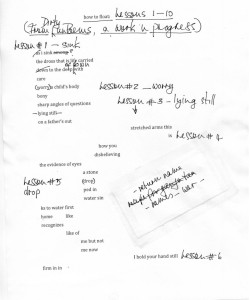 how to float Lessons 1–10
Dirty
a work in progress
Lesson #1 – sink
as I sink
the dress that is life carried
down to the deep with
care
Lesson #2 – worry
(worry) a child's body
bony
Lesson #3 – lying still
sharp angles of questions
lying still
on a father's out
stretched arms this
is Lesson #4
how you
disbelieving
the evidence of eyes
a stone
Lesson #5
(drop)
drop
ped in
water sin
ks to water first
home like
recognizes
like of
me but not
me now
return name
names – war
I hold your hand still Lesson #6
firm in to